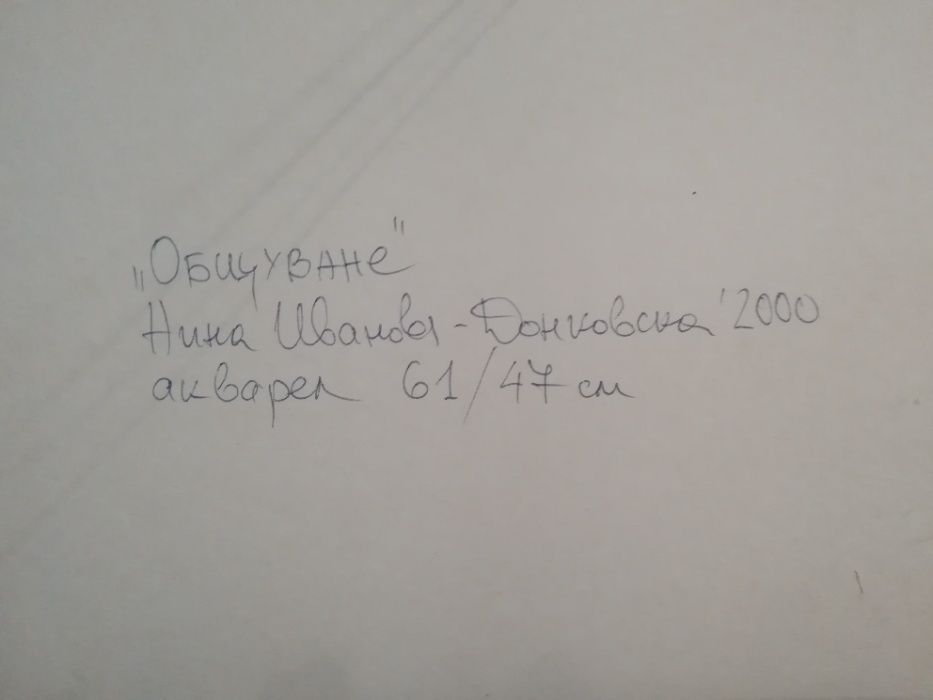 „Общуване"
Нина Иванова-Донковска '2000
акварел 61/47 см